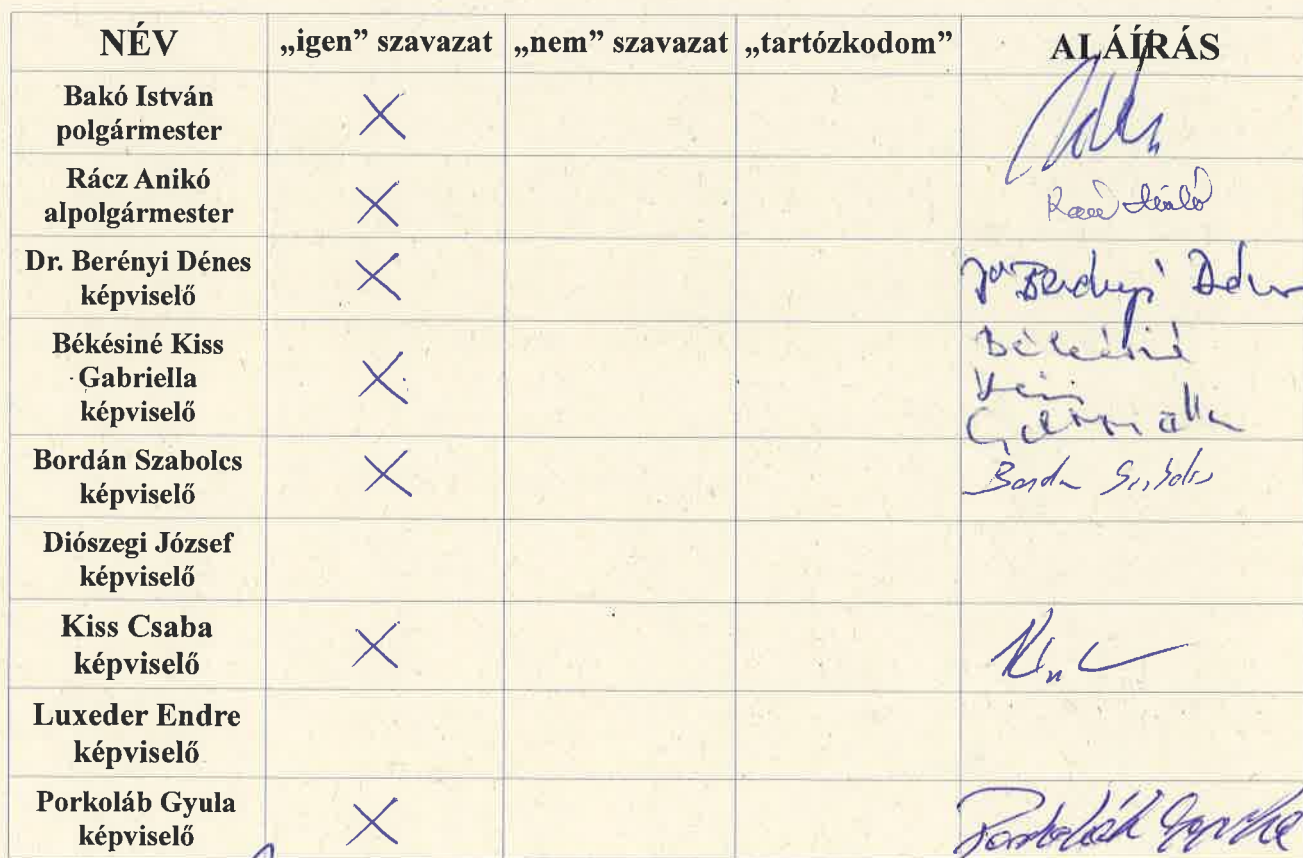 NÉV „igen” szavazat „nem” szavazat „tartózkodom” ALÁÍRÁS
Bakó István
polgármester
Rácz Anikó
alpolgármester
Dr. Berényi Dénes
képviselő
Dr Berényi Dénes
Békésiné Kiss
Gabriella
képviselő
Békésiné
Kiss
Gabriella
Bordán Szabolcs
képviselő
Diószegi József
képviselő
Kiss Csaba
képviselő
Luxeder Endre
képviselő
Porkoláb Gyula
képviselő
Porkoláb Gyula